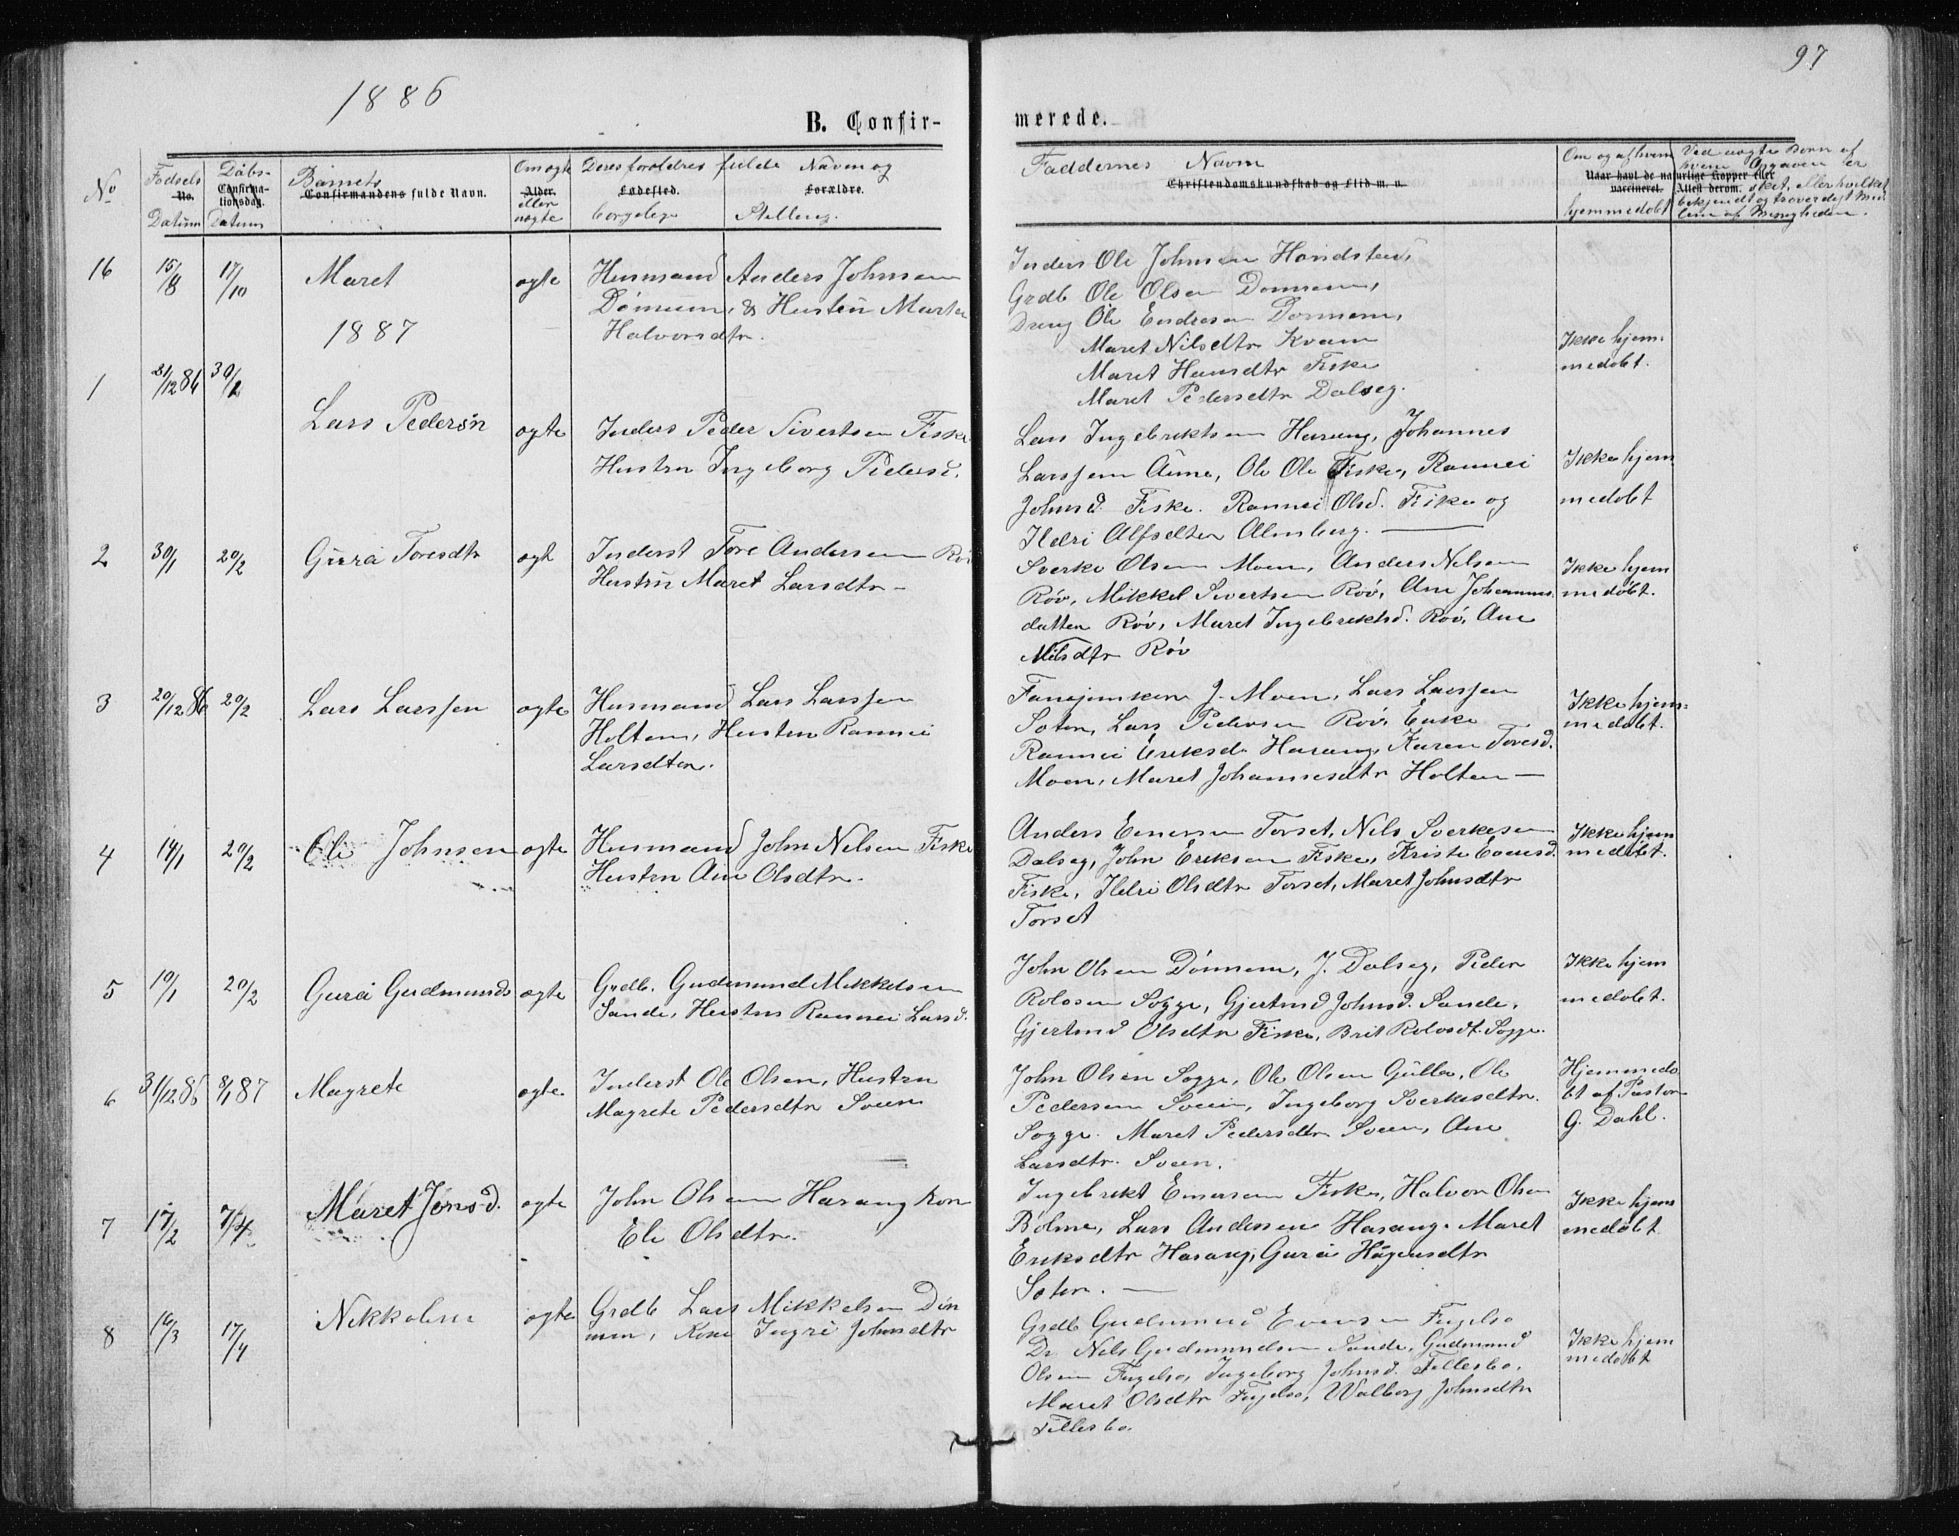 97
1886
B. Confir-
merede.
No
Fødsels
No.
Datum
Døbs-
Confirma-
tionsdag.
Datum
Barnets
Confirmandens fulde Navn.
Om ægte
Alder.
eller
uægte
Deres foreldres fulde Navn og
Fødested.
Forældre.
borgelige Stilling.
Faddernes Navn
Christendomskundskab og Flid m. v.
Om og af hvem
Naar havt de naturlige Kopper eller
vaccineret.
hjemmedøbt
Ved uægte Børn af
hvem Opgaven er
Attest derom. skeet, eller hvilket
bekjendt og troverdigt Med-
lem af Menigheden.
16
15/8
17/10
Maret
ægte
Husmand Anders Johnsen
Dønnem, & Hustru Marta
Halvorsdtr.
Inders Ole Johnsen Handsteen,
Grdb Ole Olsen Dønnem,
Dreng Ole Endresen Dønnem,
Maret Nilsdtr Kvam
Maret Hansdtr Fiske
Maret Pedersdtr Dalseg.
Ikke hjem-
medøbt.
1887
1
21/12 86
30/1
Lars Pedersn
ægte
Inders Peder Sivertsen Fiske
Hustru Ingeborg Pedersd.
Lars Ingebriktsen Harang, Johannes
Larssen Aune, Ole Ols Fiske, Rannei
Johnsd. Fiske. Rannei Olsd. Fiske og
Ildri Alfsdter Almberg. —
Ikke hjem
medøbt
2
30/1
20/2
Guru Toresdtr
ægt
Inderst Tore Andersen Røv
Hustru Maret Larsdtr —
Sverke Olsen Moen, Anders Nilsen
Røv, Mikkel Sivertsen Røv, Ane Johannes
datter Røv, Maret Ingebriktsd. Røv, Ane
Nilsdtr Røv
Ikke hjem
medøbt.
3
20/12 86
20/2
Lars Larssen
ægte
Husmand Lars Larssen
Holten, Hustru Rannei
Larsdter.
Fanejunker J. Moen, Lars Larssen
Soter, Lars Pedersen Røv, Enke
Rannei Eriksd. Harang, Karen Toresd.
Moen, Maret Johannesdtr Holten —
Ikke hjem-
medøbt.
4
14/1
20/2
Ole Johnsen
ægte
Husmand John Nilsen Fiske
Hustru Ane Olsdtr.
Anders Einersen Torset, Nils Sverkesen
Dalseg, John Eriksen Fiske, Kristi Evensd.
Fiske, Ildri Olsdtr Torset, Maret Johnsdtr
Torset
Ikke hjem
medøbt.
5
10/1
20/2
Guru Gudmunds
ægte
Grdb. Gudmund Mikkelsen
Sande, Hustru Rannei Larsd.
John Olsen Dønnem, J. Dalseg, Peder
Rolosen Sogge, Gjertrud Johnsd. Sande,
Gjertrud Olsdtr Fiske, Brit Rolosdt. Sogge.
Ikke hjem
medøbt.
6
31/12 86
8/1 87
Magrete
ægte
Inderst Ole Olsen, Hustru
Magrete Pedersdtr Sveen
John Olsen Sogge, Ole Olsen Gulla, Ole
Pedersen Sveen, Ingeborg Sverkesdtr.
Sogge. Maret Pedersdtr Sveen, Ane
Larsdtr. Sveen.
Hjemmedø
bt af Pastor
G. Dahl.
7
17/2
7/4
Maret Jonsd.
ægte
John Olsen Harang Kon
Eli Olsdtr.
Ingebrikt Einersen Fiske, Halvor Olsen
Bolme, Lars Andersen Harang. Maret
Eriksdtr Harang, Guru Hågensdtr
Soter. —
Ikke hjem
medøbt
8
16/3
17/4
Nikkoline
ægte
Grdb Lars Mikkelsen Døn
nem, Kone Ingri Johnsdtr
Grdb Gudmund Evensen Fugelso
Dr. Nils Gudmundsen Sande, Gudmund
Olsen Fugelso, Ingeborg Johnsd. Tellesbo,
Maret Olsdtr Fugelso, Walborg Johnsdtr
Tellesbo.
Ikke hjem
medøbt